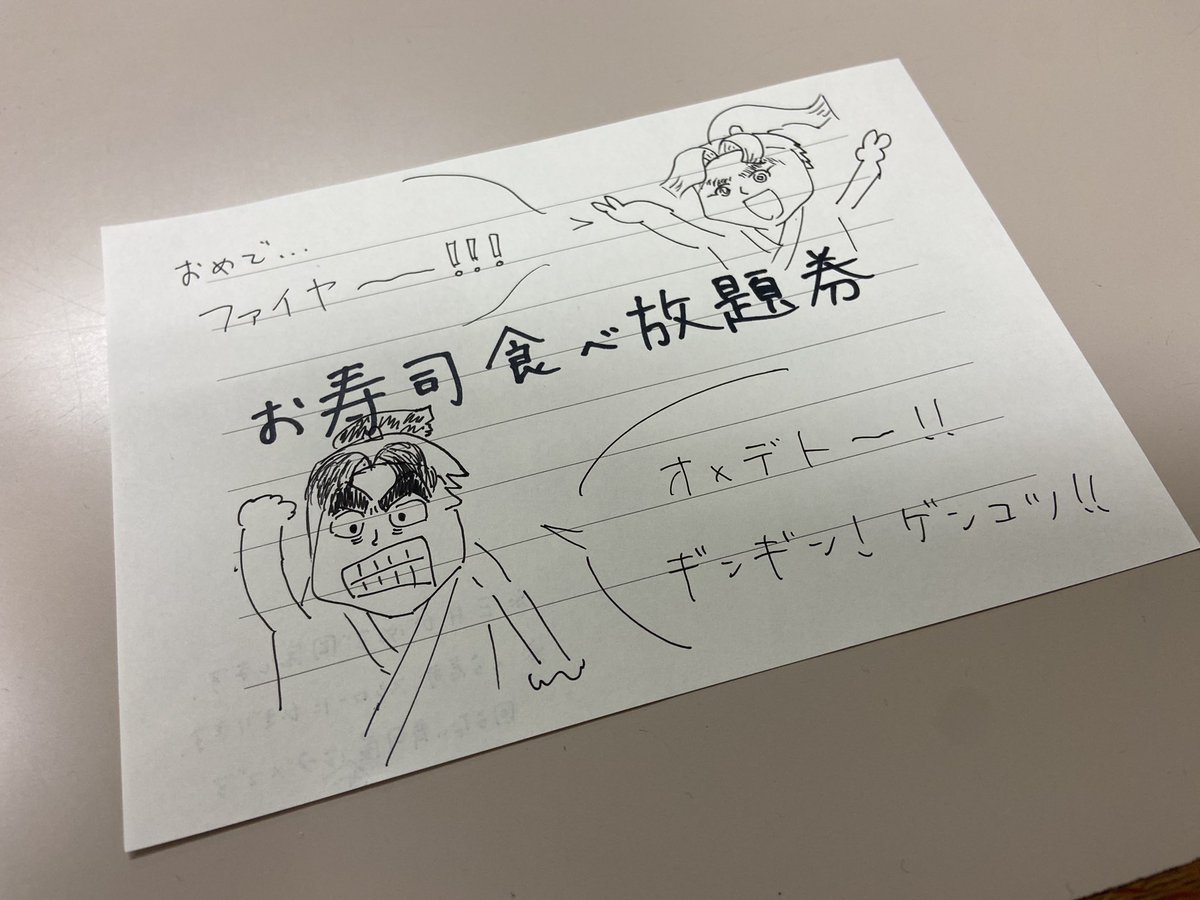 おめで...
ファイヤ〜!!!
お寿司食べ放題券
オメデト〜!!
ギンギン!ゲンコツ!!